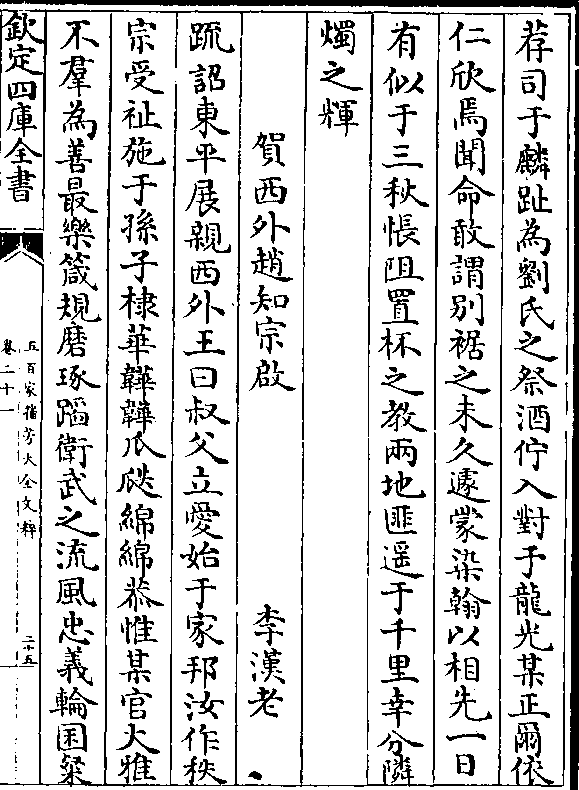 荐司于麟趾為劉氏之祭酒佇入對于龍光某正爾依
仁欣焉聞命敢謂别裾之未久遽蒙染翰以相先一日
有似于三秋悵阻置杯之教兩地匪遥于千里幸分隣
燭之輝
賀西外趙知宗啟 李漢老
疏詔東平展親西外王曰叔父立愛始于家邦汝作秩
宗受祉施于孫子棣華韡韡瓜瓞綿綿恭惟某官大雅
不羣為善最樂箴規磨琢蹈衛武之流風忠義輪囷粲
欽定四庫全書
五百家播芳大全文粹
卷二十一
二十五